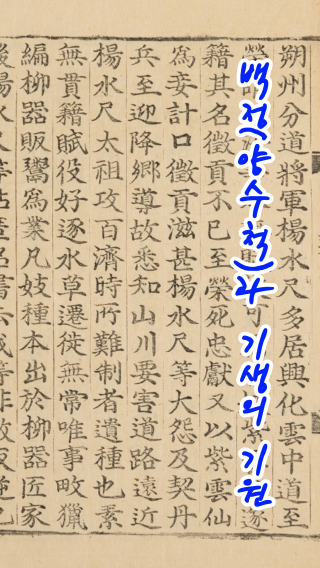 백정(양수척)과 기생의 기원
朔州分道將軍楊水尺多居興化雲中道至
籍其名徵貢不已至榮死忠獻又以紫雲仙
爲妾計口徵貢滋甚楊水尺等大怨及契丹
兵至迎降鄕導故悉知山川要害道路遠近
楊水尺太祖攻百濟時所難制者遺種也素
無貫籍賦役好逐水草遷徙無常唯事畋獵
編柳器販鬻爲業凡妓種本出於柳器匠家